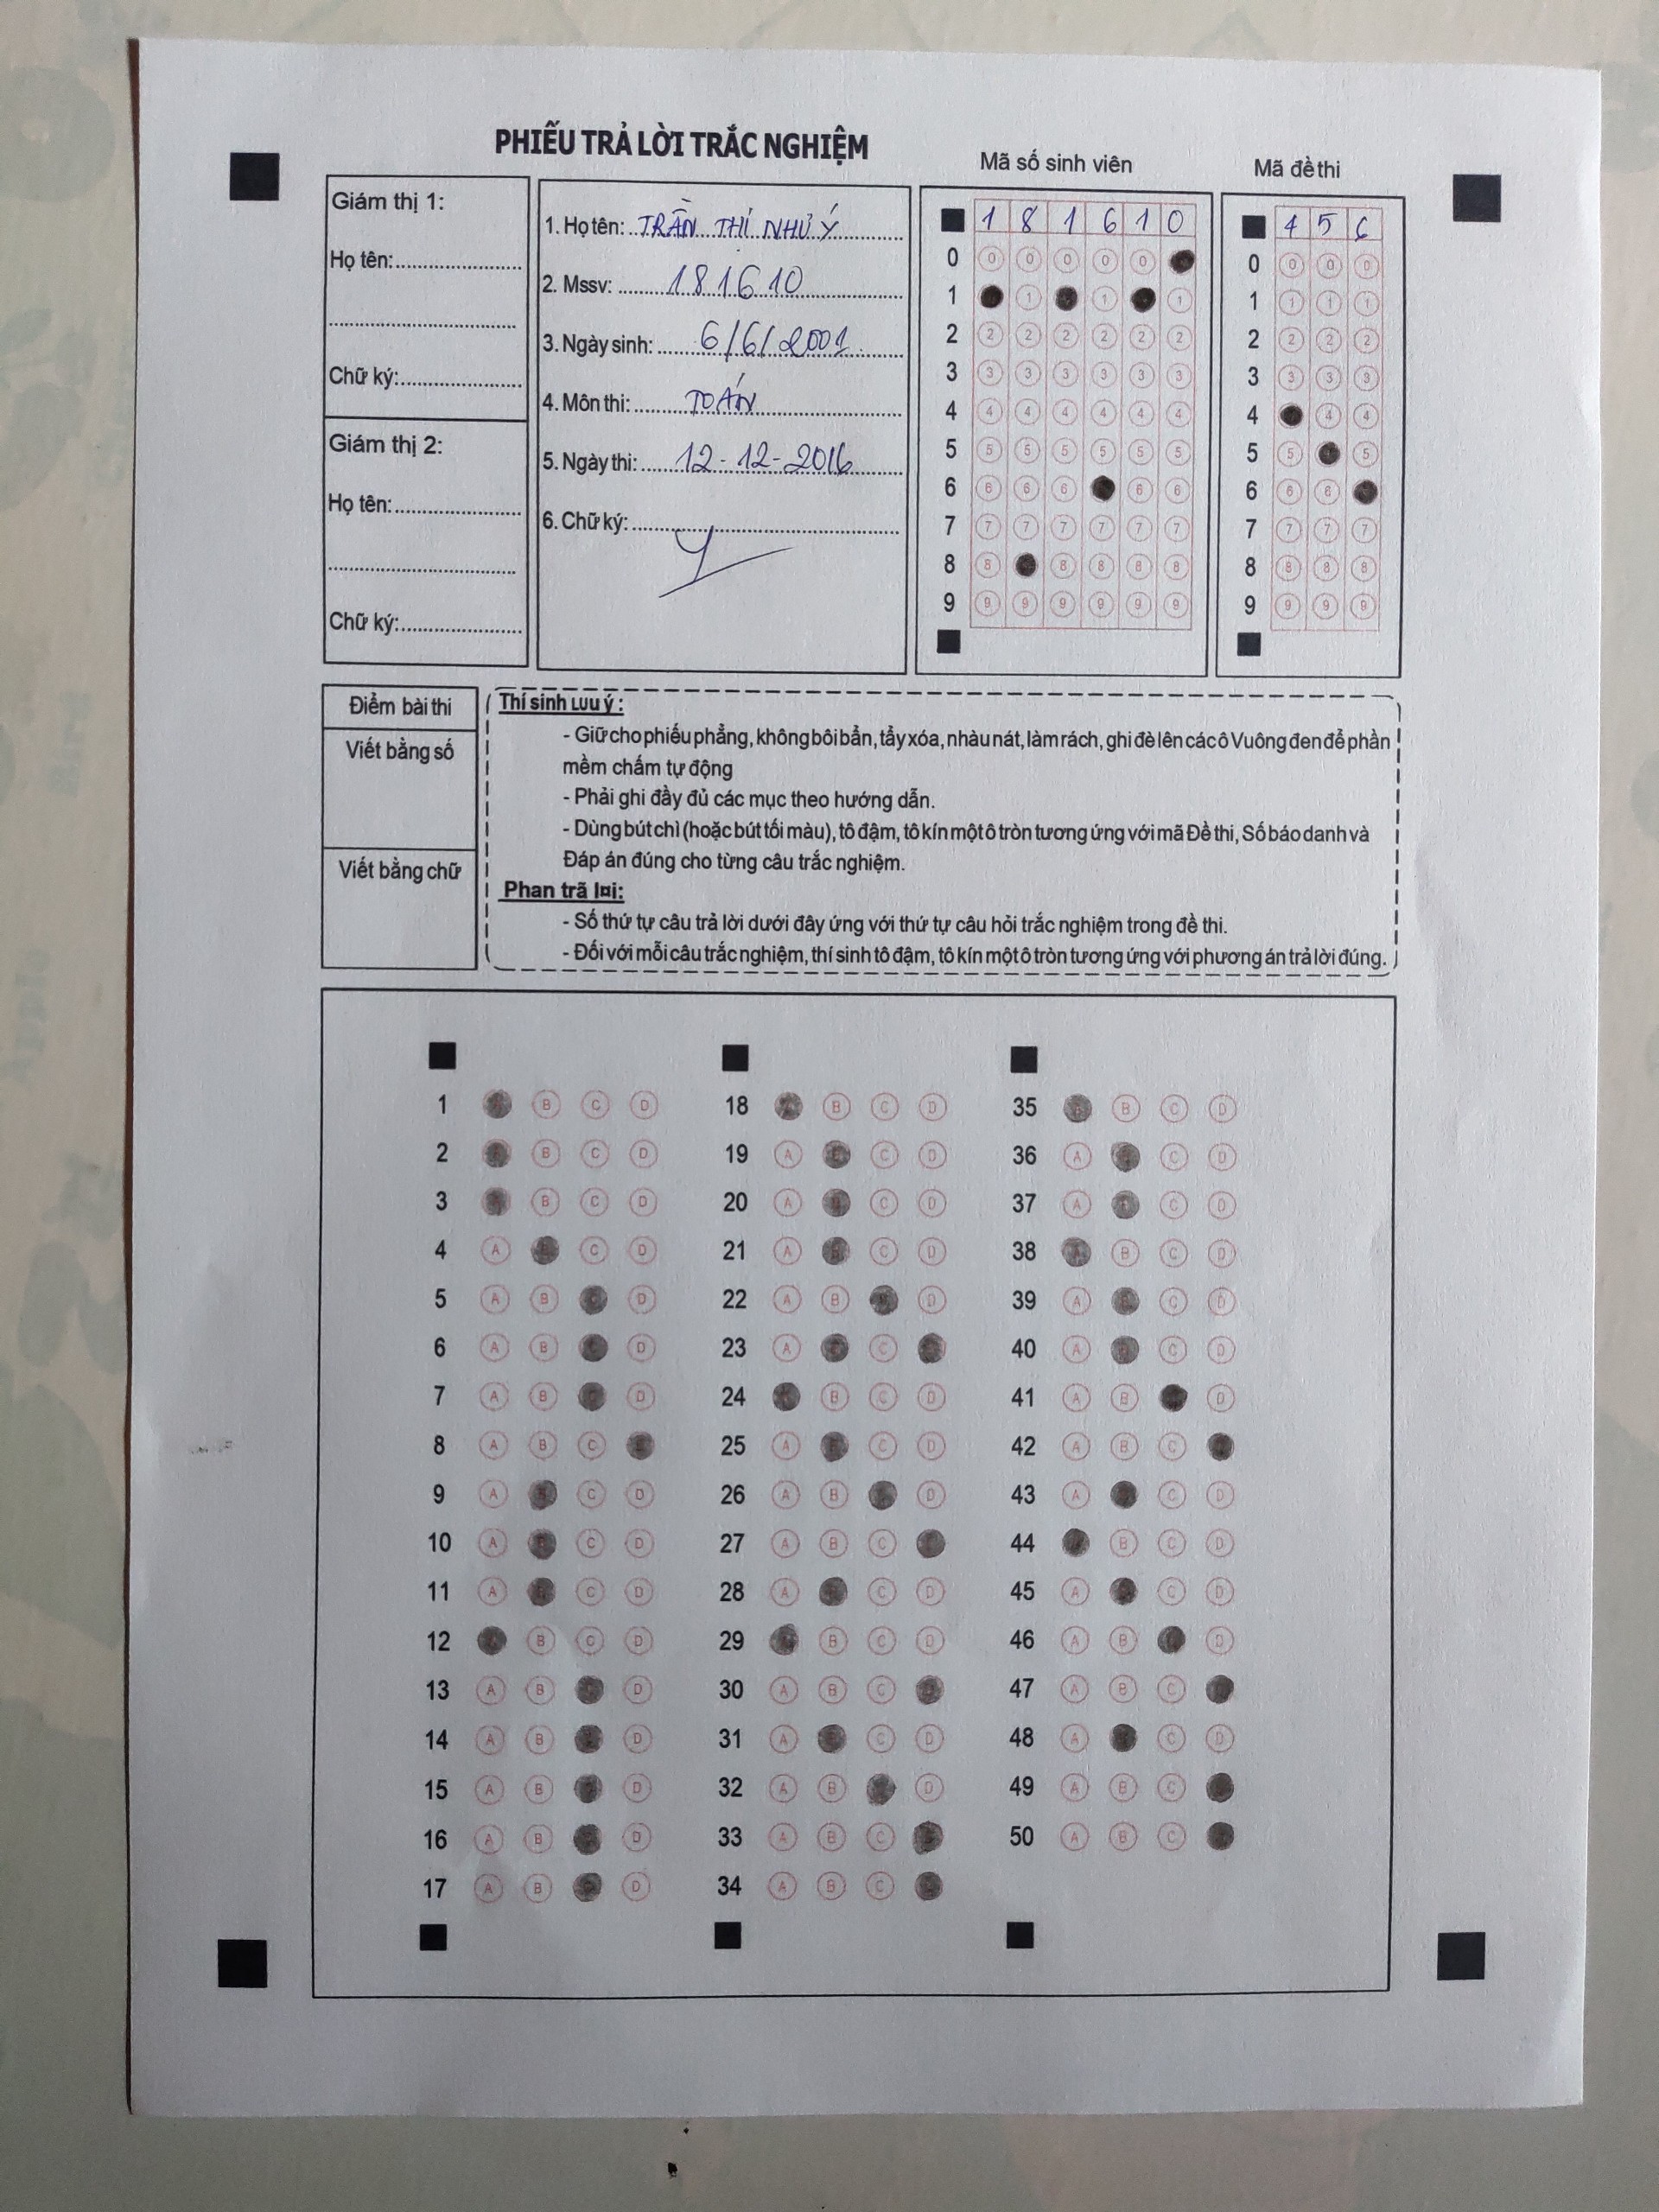 PHIẾU TRẢ LỜI TRẮC NGHIỆM
Mã số sinh viên
Mã đề thi
Giám thị 1:
Họ tên:
Chữ ký:
Giám thị 2:
Họ tên:
Chữ ký:
1. Họ tên: TRẦN THỊ NHƯ Ý
2. Mssv: 181610
3. Ngày sinh: 6/6/2001
4. Môn thi: TOÁN
5. Ngày thi: 12-12-2016
6. Chữ ký:
1 8 1 6 1 0
0 0 0 0 0 0
1 1 1
2 2 2 2 2 2 2
3 3 3 3 3 3 3
4 4 4 4 4 4 4
5 5 5 5 5 5 5
6 6 6 6 6 6
7 7 7 7 7 7 7
8 8 8 8 8 8
9 9 9 9 9 9 9
4 5 6
0 0 0 0
1 1 1 1
2 2 2 2
3 3 3 3
4 4 4
5 5 5
6 6 6
7 7 7 7
8 8 8 8
9 9 9 9
Điểm bài thi
Viết bằng số
Viết bằng chữ
Thí sinh Lưu ý :
- Giữ cho phiếu phẳng, không bôi bẩn, tẩy xóa, nhàu nát, làm rách, ghi đè lên các ô Vuông đen để phần
mềm chấm tự động
- Phải ghi đầy đủ các mục theo hướng dẫn.
- Dùng bút chì (hoặc bút tối màu), tô đậm, tô kín một ô tròn tương ứng với mã Đề thi, Số báo danh và
Đáp án đúng cho từng câu trắc nghiệm.
Phan trã l¤i:
- Số thứ tự câu trả lời dưới đây ứng với thứ tự câu hỏi trắc nghiệm trong đề thi.
- Đối với mỗi câu trắc nghiệm, thí sinh tô đậm, tô kín một ô tròn tương ứng với phương án trả lời đúng.
1 B C D
2 B C D
3 B C D
4 A C D
5 A B D
6 A B D
7 A B D
8 A B C
9 A C D
10 A C D
11 A C D
12 B C D
13 A B D
14 A B D
15 A B D
16 A B D
17 A B D
18 B C D
19 A C D
20 A C D
21 A C D
22 A B D
23 A C
24 B C D
25 A C D
26 A B D
27 A B C
28 A C D
29 B C D
30 A B C
31 A C D
32 A B D
33 A B C
34 A B C
35 B C D
36 A C D
37 A C D
38 B C D
39 A C D
40 A C D
41 A B D
42 A B C
43 A C D
44 B C D
45 A C D
46 A B D
47 A B C
48 A C D
49 A B C
50 A B C